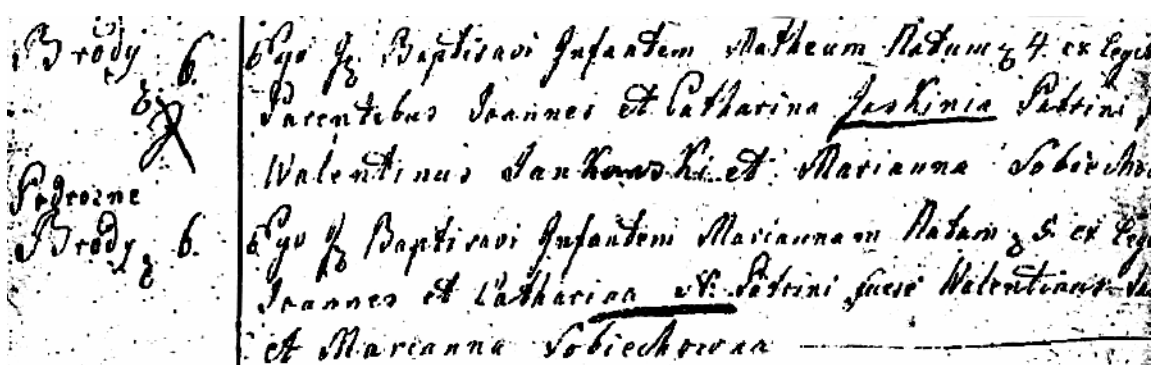 Brody 6. Ego Jz Baptisavi Infantem Matheum Natum z 4. ex Legit
Parentibus Joannes et Catharina Jaskinia Patrini
Walentinus Jankowski et Marianna Sobiecho
Podrozne
Brody z 6. Ego Jz Baptisavi Infantem Mariannam Natam z 5. ex Leg
Joannes et Catharina N. Patrini fuere Walentinus Ja
et Marianna Sobiechowna